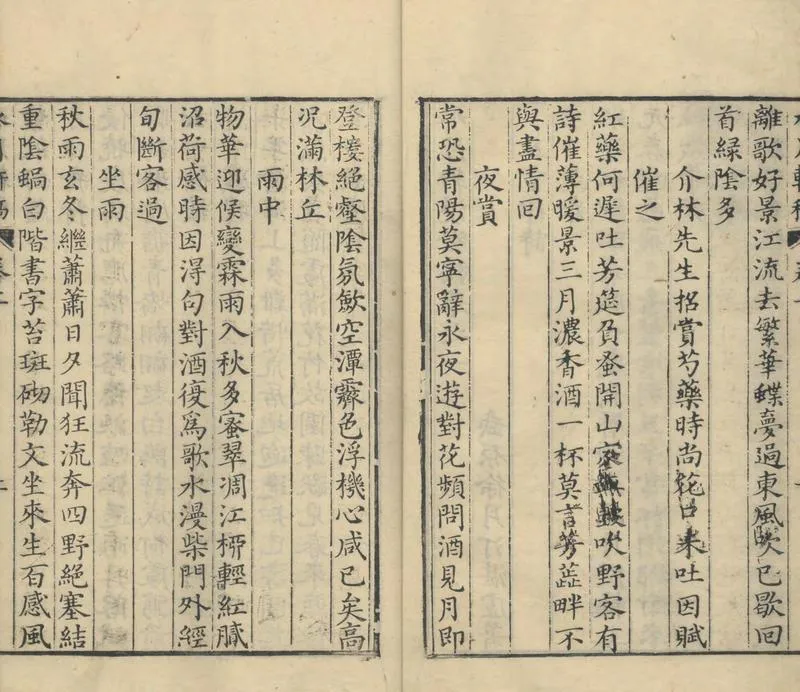 離歌好景江流去繁華蝶夢過東風吹已歇回
首綠陰多
介林先生招賞芍藥時尚花口未吐因賦
催之
紅藥何遲吐芳筵負蚤開山家鼓吹野客有
詩催薄暖景三月濃香酒一杯莫言芳蕋畔不
與盡情回
夜賞
常恐青陽莫寧辭永夜遊對花頻問酒見月即
登樓絕壑陰氛斂空潭霽色浮機心咸已矣高
况滿林丘
雨中
物華迎候變霖雨入秋多蜜翠凋江柳輕紅膩
沼荷感時因淂句對酒復爲歌水漫柴門外經
旬斷客過
坐雨
秋雨玄冬繼蕭蕭日夕聞狂流奔四野絕塞結
重陰蝸白階書字苔斑砌勒文坐來生百感風